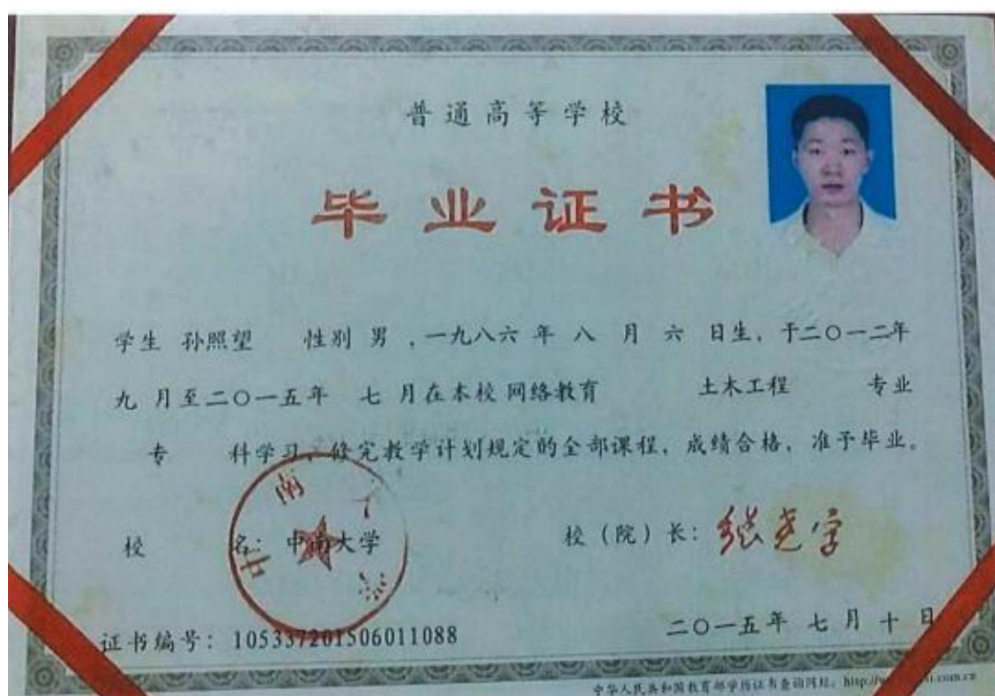 普通高等学校
毕业证书
学生 孙照望 性别 男 ,一九八六 年 八 月 六 日生,于二〇一二年
九 月至二〇一五年 七 月在本校 网络教育 土木工程 专业
专 科学习,修完教学计划规定的全部课程,成绩合格,准予毕业。
校 名:中南大学 校(院)长:
证书编号:105337201506011088 二〇一五年 七 月 十 日
中华人民共和国教育部学历证书查询网址: